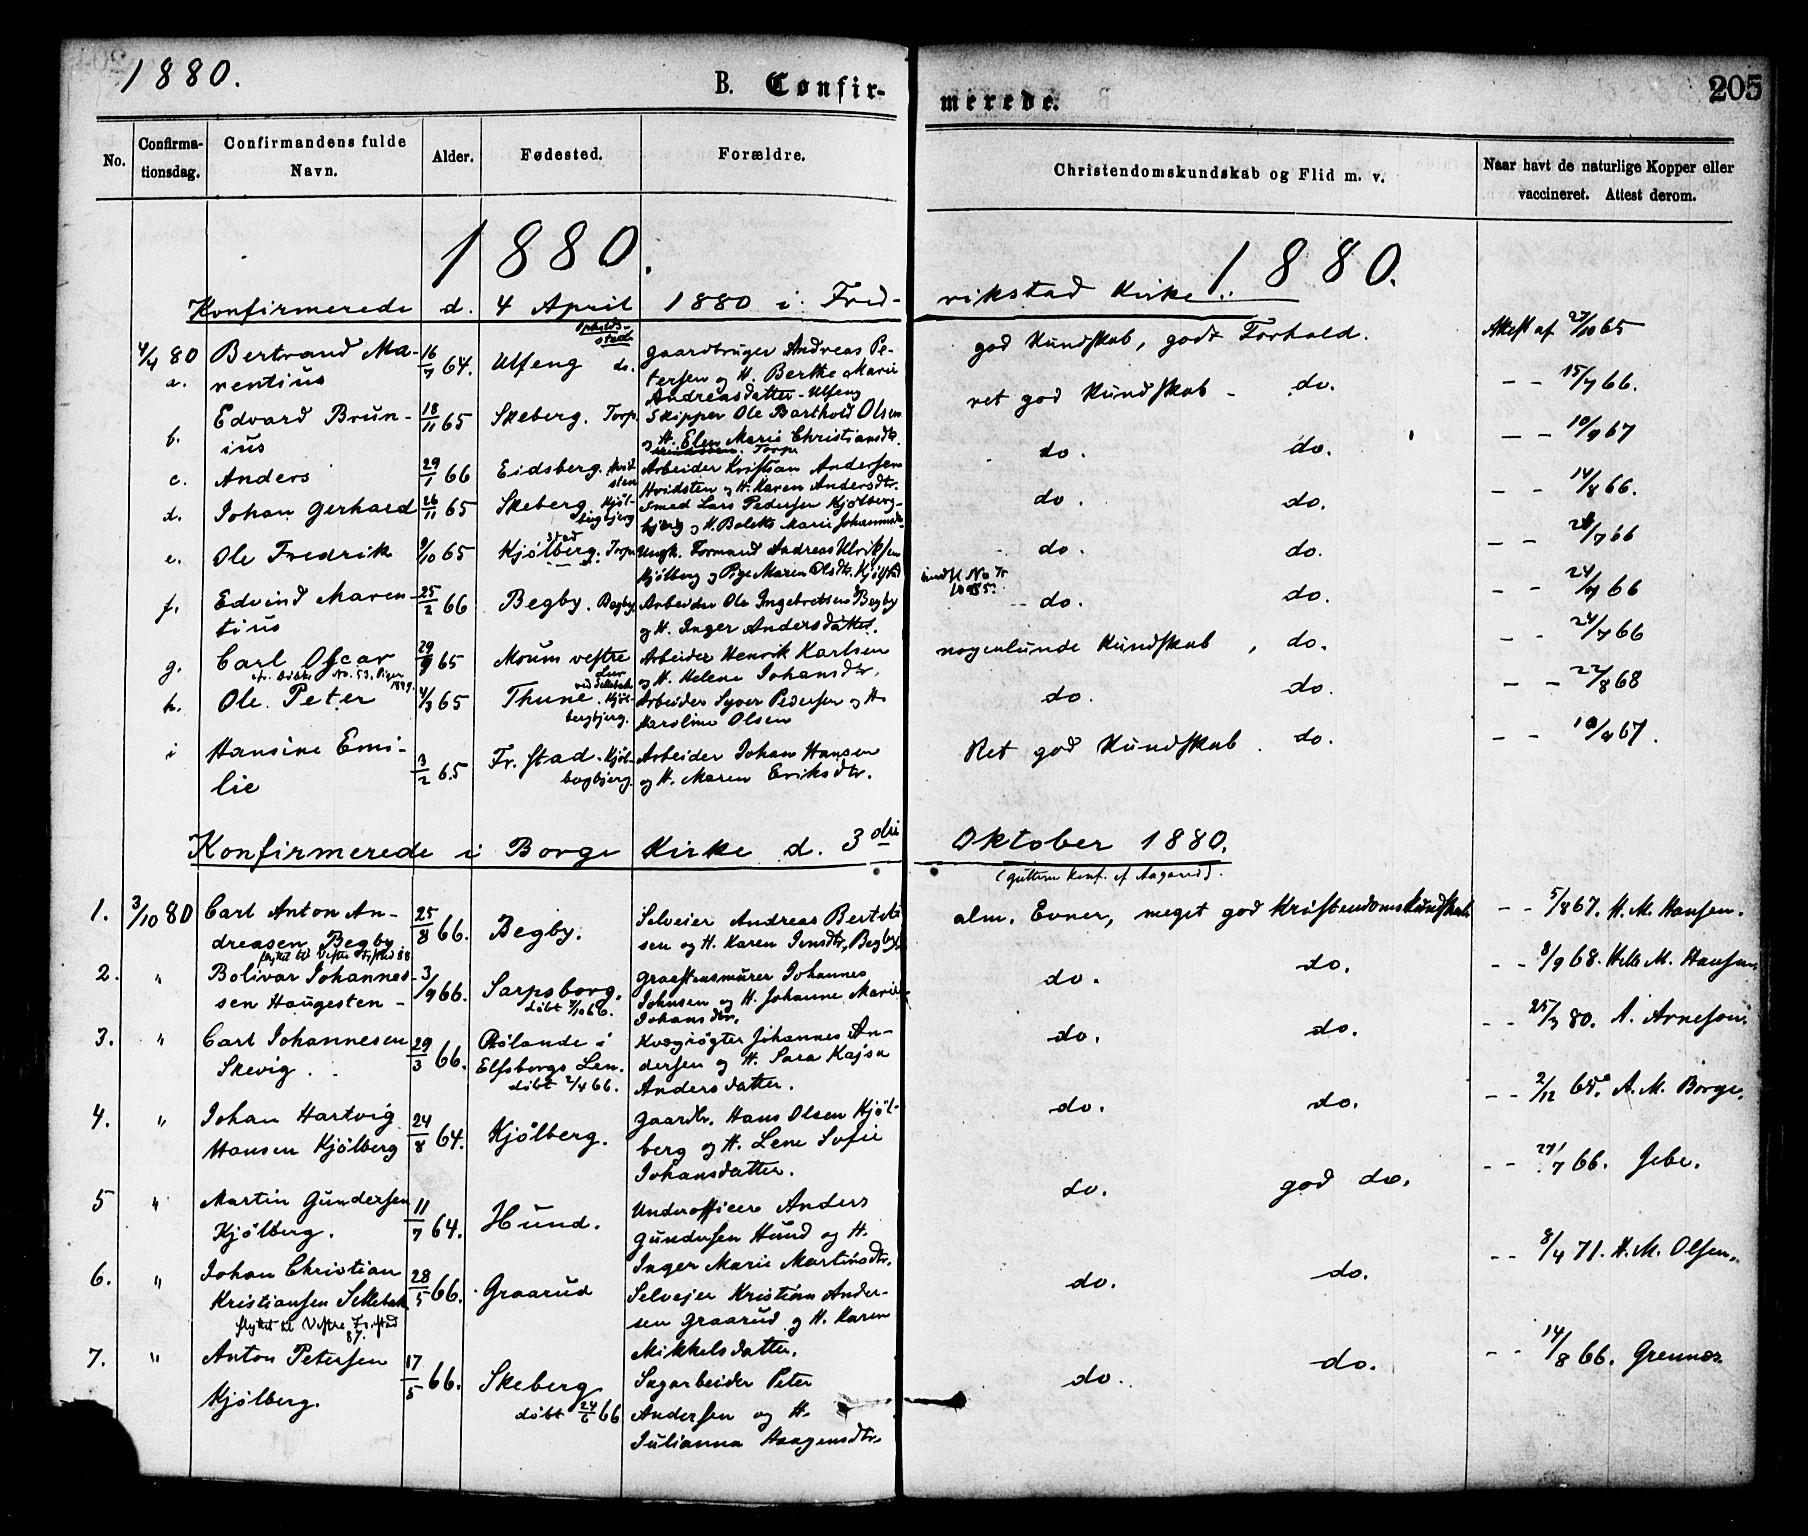 1880.
B. Confir-
merede.
205
No.
Confirma-
tionsdag.
Confirmandens fulde
Navn.
Alder.
Fødested.
Forældre.
Christendomskundskab og Flid m. v.
Naar havt de naturlige Kopper eller
vaccineret. Attest derom.
1880.
1880.
Konfirmerede d. 4 April 1880 i Fred-
rikstad Kirke:
4/4 80
a.
Bertrand Ma-
rentius
16/7 64.
Opholds-
sted
Ulfeng do.
Gaardbruger Andreas Pe-
tersen og H. Berthe Marie
Andreasdatter - Ulfeng
god Kundskab, godt Forhold.
Attest af 27/10 65
b.
Edvard Brun-
ius
18/11 65
Skeberg. Torp.
Skipper Ole Barthold Olsen
og H. Elen Marie Christiansdtr.
Torp.
ret god Kundskab - do.
- - 15/7 66.
c.
Anders
29/1 66
Eidsberg. Hvid
sten
Arbeider Kristian Andersen
Hvidsten og H. Karen Andersdtr.
do. do.
- - 10/9 67
d.
Johan Gerhard
26/11 65
Skeberg. Kjöl-
bergbjerg
Smed Lars Pedersen Kjölberg-
bjerg og H. Bolette Marie
do. do.
- - 14/8 66.
e.
Ole Fredrik
9/10 65
Kjölberg. Torp
Ungk. Formand Andreas Ulriksen
Kjölberg og Pige Maren Olsdtr.
do. do.
- - 28/7 66
f.
Edvind Maren-
tius
25/2 66
Begby. Begby
Arbeider Ole Ingebretsen Begby
og H. Inger Andersdatter.
do. do.
- - 24/7 66
g.
Carl Oscar
29/9 65
Moum vestre
Arbeider Henrik Karlsen
og H. Helene Johansdtr.
nogenlunde Kundskab, do.
- - 24/7 66
h.
Ole Peter
4/3 65
Thune. Kjöl-
bergbjerg.
Arbeider Syver Pedersen og H.
Karoline Olsen
do. do.
- - 22/8 68
i
Hansine Emi-
lie
3/2 65
Fr. stad. Kjöl-
bergbjerg.
Arbeider Johan Hansen
og H. Maren Eriksdtr.
Ret god Kundskab. do.
- - 10/9 67.
Konfirmerede i Borge Kirke d. 3die
Oktober 1880.
(Gutterne konf. af Aagaard).
1.
3/10 80
Carl Anton An-
dreasen Begby
flyttet til Vestre Fr.stad 88
25/8 66.
Begby.
Selveier Andreas Bertel-
sen og H. Karen Jensdtr, Begby.
alm. Evner, meget god Kristendomskundskab
- - 5/8 67. H. M. Hansen.
2.
"
Bolivar Johannes-
sen Haugesten -
3/9 66.
Sarpsborg.
döbt 7/10 66.
Graastensmurer Johannes
Johnsen og H. Johanne Marie
Johansdtr.
do. do.
- - 8/9 68. Helle M. Hansen
3.
"
Carl Johannesen
Skevig.
29/3 66.
Rölanda i
Elfsborgs Len.
döbt 2/4 66.
Kvægrøgter Johannes An-
dersen og H. Sara Kajsa
Andersdatter.
do. do.
- - 25/3 80. A. Arnesen.
4.
"
Johan Hartvig
Hansen Kjölberg
24/8 64.
Kjölberg.
Gaardbr. Hans Olsen Kjöl-
berg og H. Lene Sofie
Johansdatter.
do. do.
- - 2/12 65. A. M. Borge.
5
"
Martin Gundersen
Kjölberg.
11/7 64.
Hund.
Underofficer Anders
Gundersen Hund og H.
Inger Marie Martinsdtr.
do. god do.
- - 27/7 66. Jebe.
6.
"
Johan Christian
Kristiansen Sellebak
flyttet til Vestre Fr.stad
87.
28/5 66.
Graarud
Selvejer Kristian Ander-
sen Graarud og H. Karen
Mikkelsdatter.
do. do.
- - 8/4 71. H. M. Olsen.
7.
"
Anton Petersen
Kjölberg.
17/5 66.
Skeberg
döbt 24/6 66
Sagarbeider Peter
Andersen og H.
Julianna Haagensdtr.
do. do.
- - 14/8 66. Grennes.